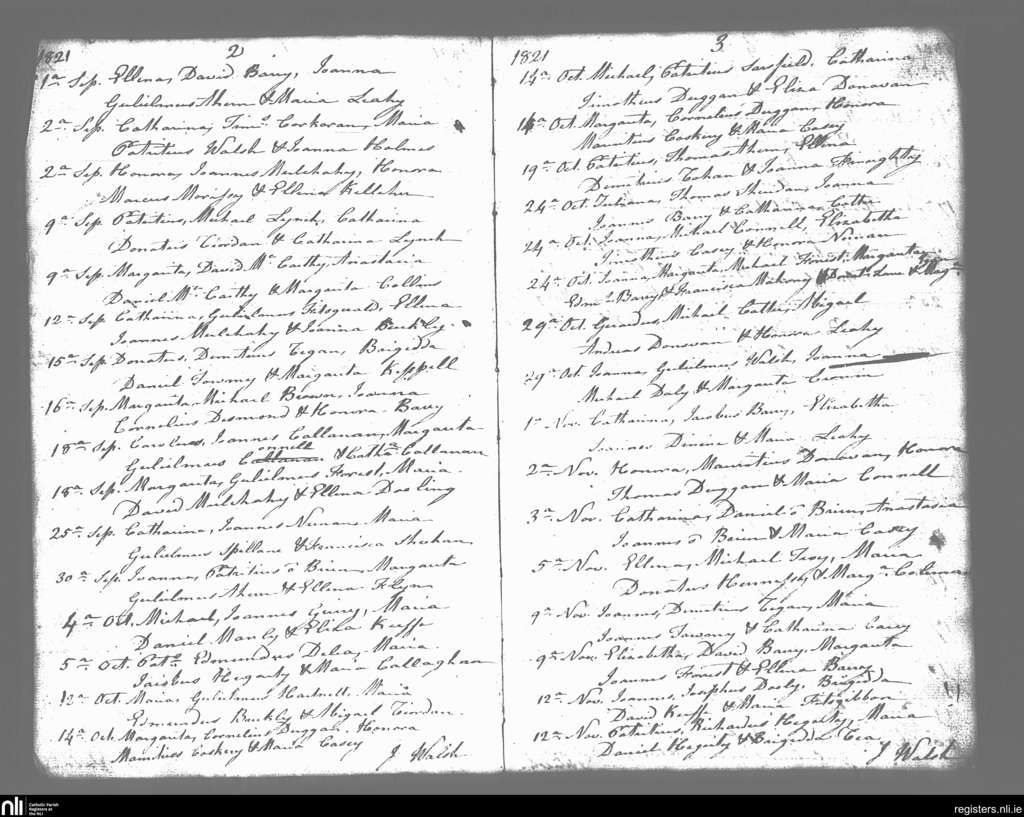 1821 2
1a Sep. Ellena, David Barry, Joanna
Gulielmus Ahern & Maria Leahy
2a Sep. Catharina, Timo. Corkoran, Maria
Patritius Walsh & Joanna Holmes
2a Sep. Honora, Joannes Mulchahy, Honora
Marcus Morissy & Ellena Kelleher
9a Sep. Patritius, Michael Lynch, Catharina
Donatus Riordan & Catharina Lynch
9a Sep. Margarita, David Mc Carthy, Anastasia
Daniel Mc Carthy & Margarita Collins
12a Sep. Catharina, Gulielmus Fitzgerald, Ellena
Joannes Mulchahy & Joanna Buckly.
15a Sep. Donatus, Demetrius Regan, Brigidda
Daniel Twomy & Margarita Keppell
16a Sep. Margarita, Michael Brown, Joanna
Cornelius Desmond & Honora Barry
18a Sep. Carolus, Joannes Callanan, Margarita
Gulielmus Connell & Catha. Callanan
18a Sep. Margarita, Gulielmus Forest, Maria.
David Mulchahy & Ellena Dooling
25a Sep. Catharina, Joannes Nunan Maria
Gulielmus Spillane & Francisca Sheehan
30a Sep. Joanna, Patritius ó Brien, Margarita
Gulielmus Ahern & Ellena Flyn
4a Oct. Michael, Joannes Geary, Maria
Daniel Manly & Eliza Keeffe
5a Oct. Pats. Edmundus Delea, Maria.
Jacobus Hegarty & Maria Callaghan
12a Oct. Maria, Gulielmus Hartnett, Maria
Edmundus Buckly & Abigael Riordan.
14a Oct. Margarita, Cornelius Duggan, Honora
Mauritius Coskery & Maria Casey
J Walsh
1821 3
14a Oct. Michael, Patritius Sarsfield, Catharina
Timotheus Duggan & Eliza Donovan
14a Oct. Margarita, Cornelius Duggan, Honora
Mauritius Coskery & Maria Casey
19a Oct. Patritius, Thomas Ahern, Ellena
Demetrius Cohan & Joanna
24a Oct. Juliana, Thomas Sheridan, Joanna
Joannes Barry & Catharina Cotter
24a Oct. Joanna, Michael Connell, Elizabetha
Timotheus Casey & Honora Nunan
24a Oct. Joanna, Margarita, Michael Forest, Margarita
Edmd. Barry & Francisca Mahony & Donats. Lane & Marga.
29a Oct. Gerardus, Michael Cotter, Abigael
Andreas Donovan & Honora Leahy
29a Oct. Joanna, Gulielmus Walsh, Joanna
Michael Daly & Margarita Cronin
1a Nov. Catharina, Jacobus Barry, Elizabetha
Joannes Dineen & Maria Leahy
2a Nov. Honora, Mauritius Donovan, Honora
Thomas Duggan & Maria Connell
3a Nov. Catharina, Daniel ó Brien, Anastasia
Joannes ó Brien & Maria Casey
5a Nov. Ellena, Michael Troy, Maria
Donatus Hennessy & Marga. Coleman
9a Nov. Joannes, Demetrius Regan, Maria
Joannes Twomy & Catharina Carey
9a Nov. Elizabetha, David Barry, Margarita
Joannes Forest & Ellena Barry
12a Nov. Joannes, Josephus Dooly, Brigidda
David Keeffe & Maria Fitzgibbon
12a Nov. Patritius, Richardus Hegarty, Maria
Daniel Hegerty & Brigidda Rea,
J Walsh
nli
Catholic Parish
Registers at
the NLI
registers.nli.ie